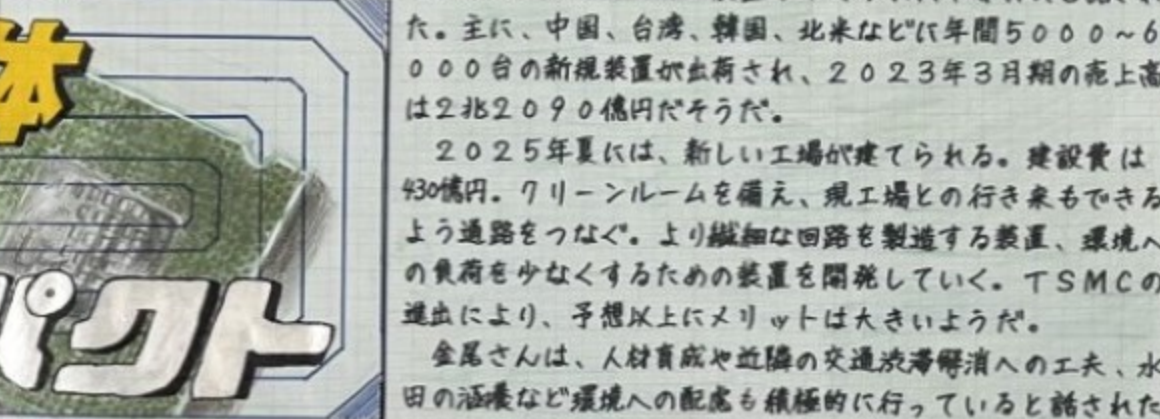 体
パクト
た。主に、中国、台湾、韓国、北米などに年間5000~6
000台の新規装置が出荷され、2023年3月期の売上高
は2兆2090億円だそうだ。
2025年夏には、新しい工場が建てられる。建設費は
430億円。クリーンルームを備え、現工場との行き来もできる
よう通路をつなぐ。より繊細な回路を製造する装置、環境へ
の負荷を少なくするための装置を開発していく。TSMCの
進出により、予想以上にメリットは大きいようだ。
金尾さんは、人材育成や近隣の交通渋滞解消への工夫、水
田の涵養など環境への配慮も積極的に行っていると話された